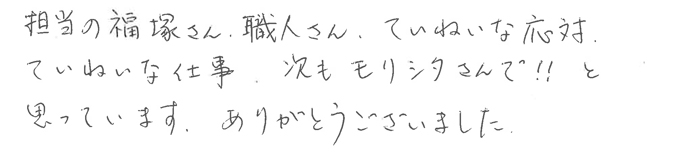 担当の福塚さん、職人さん、ていねいな応対、
ていねいな仕事、次もモリシタさんで!! と
思っています。ありがとうございました。